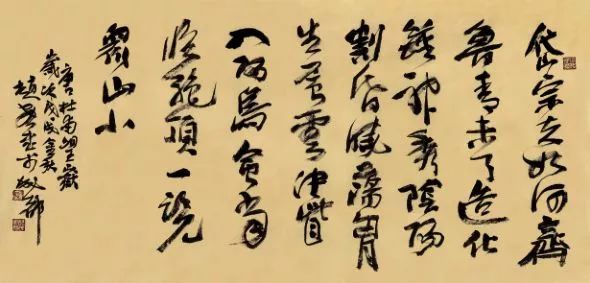 岱宗夫如何齊
魯青未了造化
鍾神秀陰陽
割昏曉蕩胷
生層雲決眥
入歸鳥會當
臨絕頂一覽
衆山小
唐杜甫望嶽
歲次戊戌金秋
趙於都